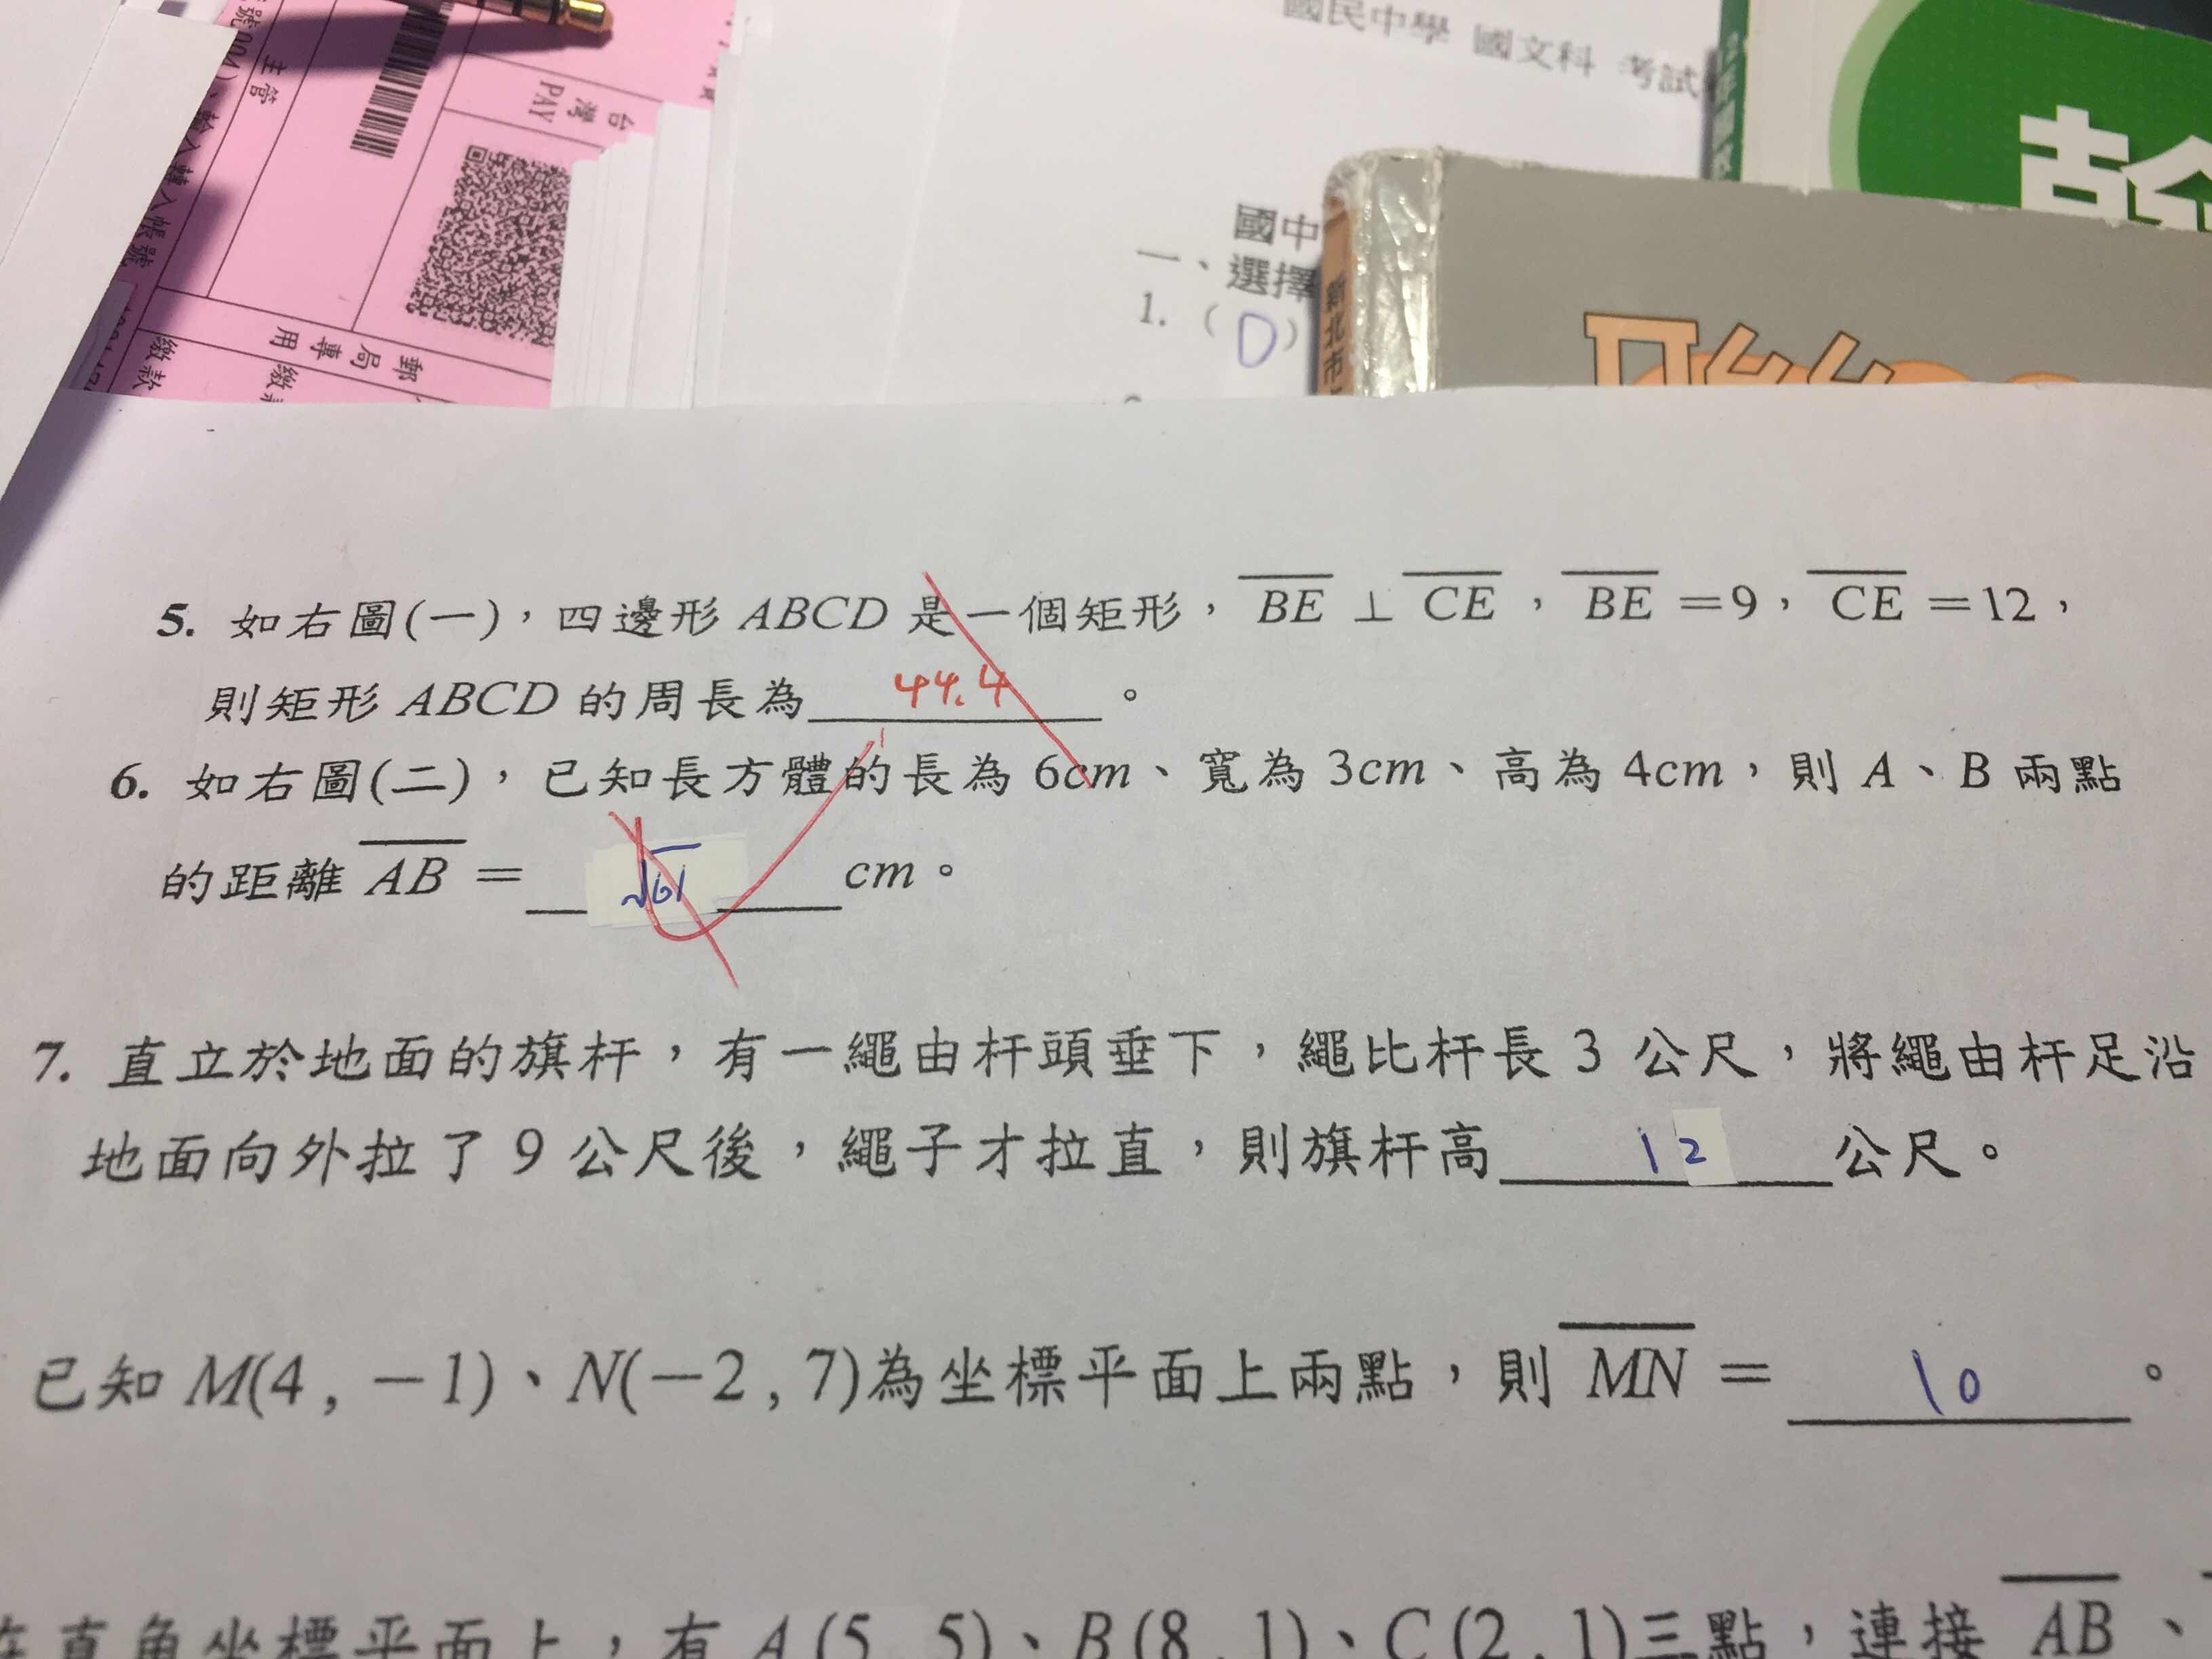 國民中學 國文科 考試
台灣
PAY
主管
郵局專用
繳款
國中
一、選擇
1. ( D )
新北市
5. 如右圖(一)，四邊形 ABCD 是一個矩形，BE ⊥ CE，BE =9，CE =12，
則矩形 ABCD 的周長為 44.4 。
6. 如右圖(二)，已知長方體的長為 6cm、寬為 3cm、高為 4cm，則 A、B 兩點
的距離 AB = √61 cm。
7. 直立於地面的旗杆，有一繩由杆頭垂下，繩比杆長 3 公尺，將繩由杆足沿
地面向外拉了 9 公尺後，繩子才拉直，則旗杆高 12 公尺。
已知 M(4 , －1)、N(－2 , 7)為坐標平面上兩點，則 MN = 10 。
在直角坐標平面上，有 A (5 , 5)、B (8 , 1)、C (2 , 1)三點，連接 AB、